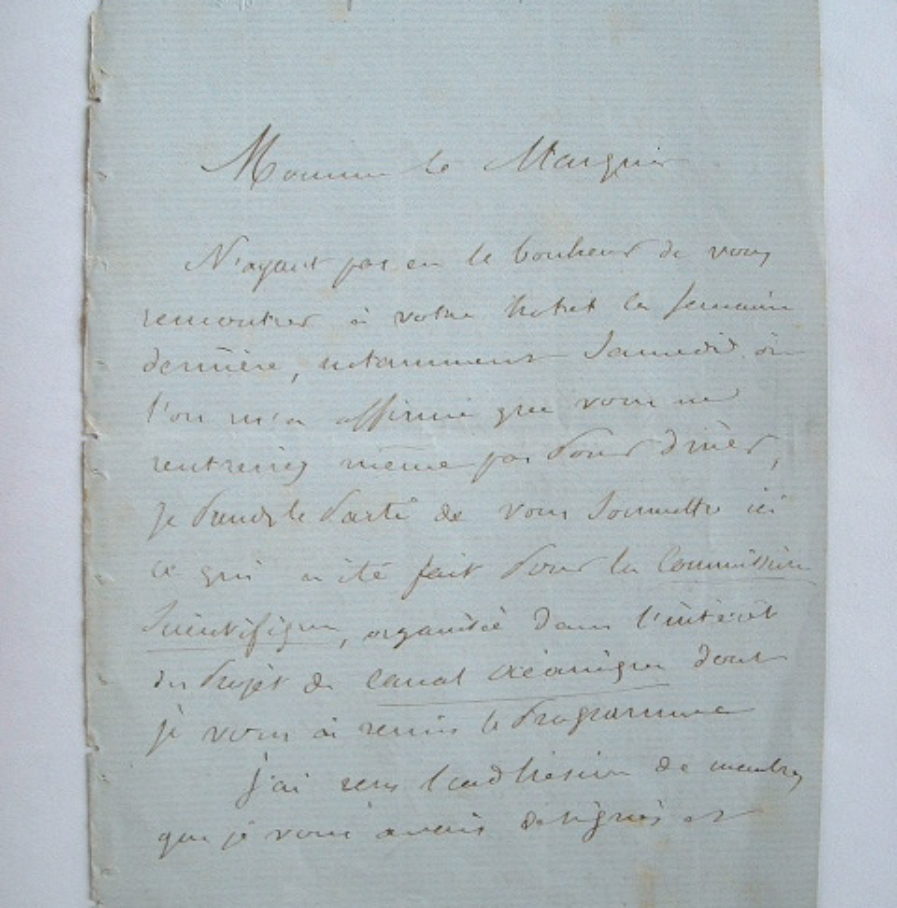 Monsieur le Marquis
N'ayant pas eu le bonheur de vous
rencontrer à votre hotel la semaine
dernière, notamment Samedi où
l'on m'a affirmé que vous ne
rentreriez même pas pour diner,
je prends le parti de vous soumettre ici
ce qui a été fait pour la Commission
Scientifique, organisée dans l'intérêt
du projet de Canal océanique dont
je vous ai remis le programme
J'ai reçu l'adhésion de membres
que je vous avais désignés et